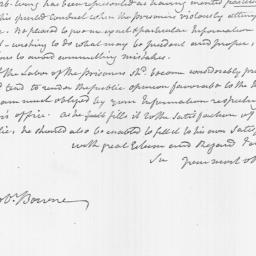 living has been represented as having merited
his cruel conduct when the prisoner violently attem
be pleased to give me exact & particular Information
wishing to do what may be prudent and proper
to avoid committing mistakes.
the Labor of the prisoners sh.d become considerably pro
tend to render the public opinion favorable to the
am much obliged by your Information respecting
's office. as he full fills it to the satisfaction of
he should also be enabled to fulfil to his own Satisf
with great Esteem and Regard I a
Sir your most ob
Bowne